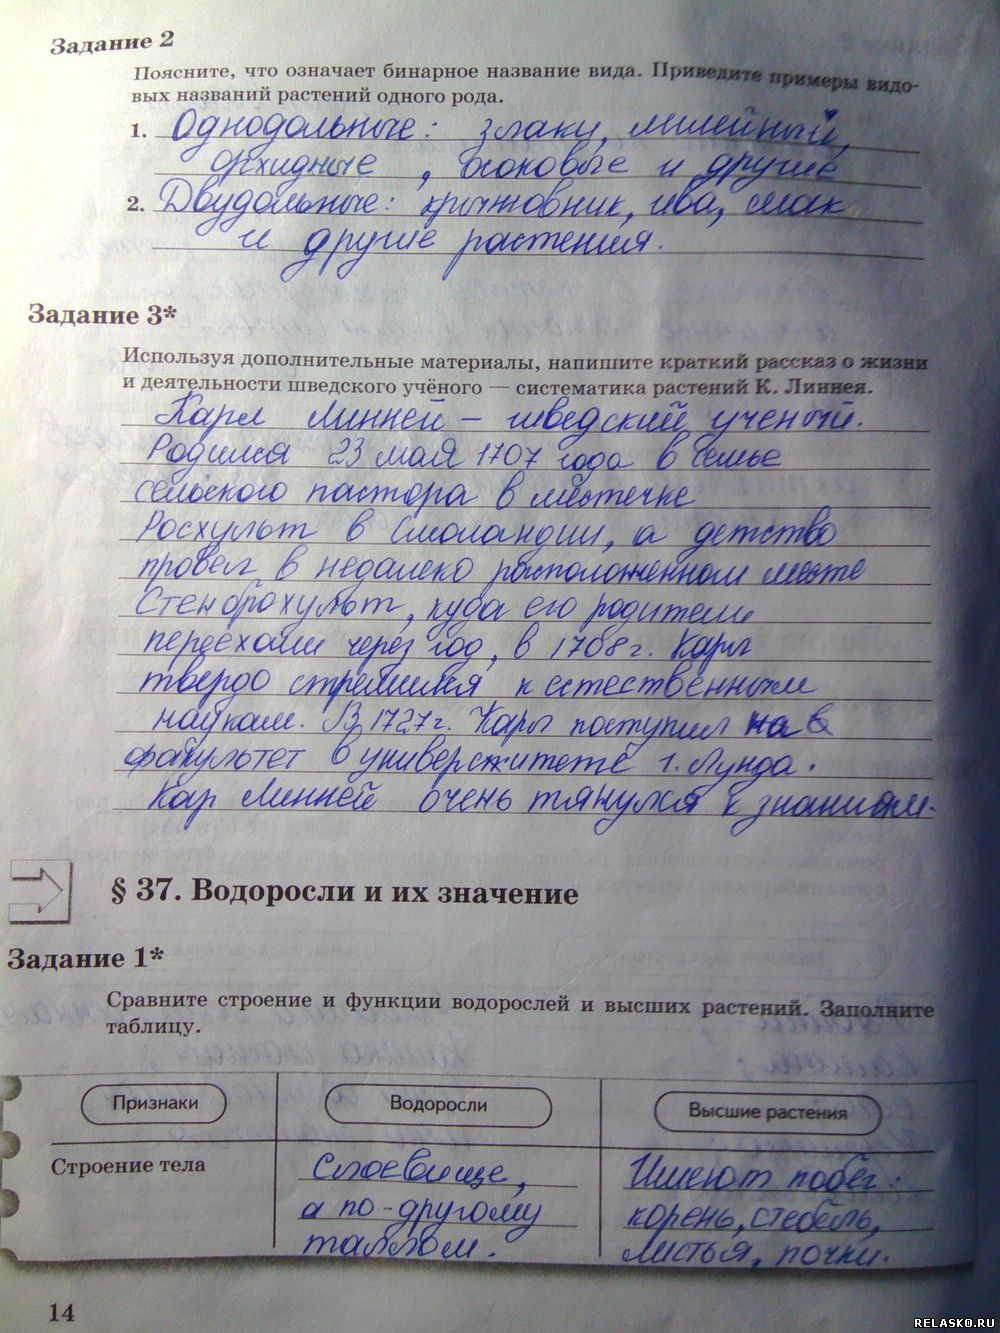 Задание 2
Поясните, что означает бинарное название вида. Приведите примеры видо-
вых названий растений одного рода.
1. Однодольные: злаки, лилейный,
орхидные, осоковые и другие
2. Двудольные: крыжовник, ива, мак
и другие растения.
Задание 3*
Используя дополнительные материалы, напишите краткий рассказ о жизни
и деятельности шведского учёного — систематика растений К. Линнея.
Карл Линней – шведский ученый.
Родился 23 мая 1707 года в семье
сельского пастора в местечке
Росхульт в Смоландии, а детство
провел в недалеко расположенном месте
Стенброхульт, куда его родители
переехали через год, в 1708 г. Карл
твердо стремился к естественным
наукам. В 1727 г. Карл поступил на
факультет в университете г. Лунда.
Кар Линней очень тянулся к знаниям.
§ 37. Водоросли и их значение
Задание 1*
Сравните строение и функции водорослей и высших растений. Заполните
таблицу.
Признаки Водоросли Высшие растения
Строение тела Слоевище, Имеют побег:
а по-другому корень, стебель,
таллом. листья, почки.
14
RELASKO.RU